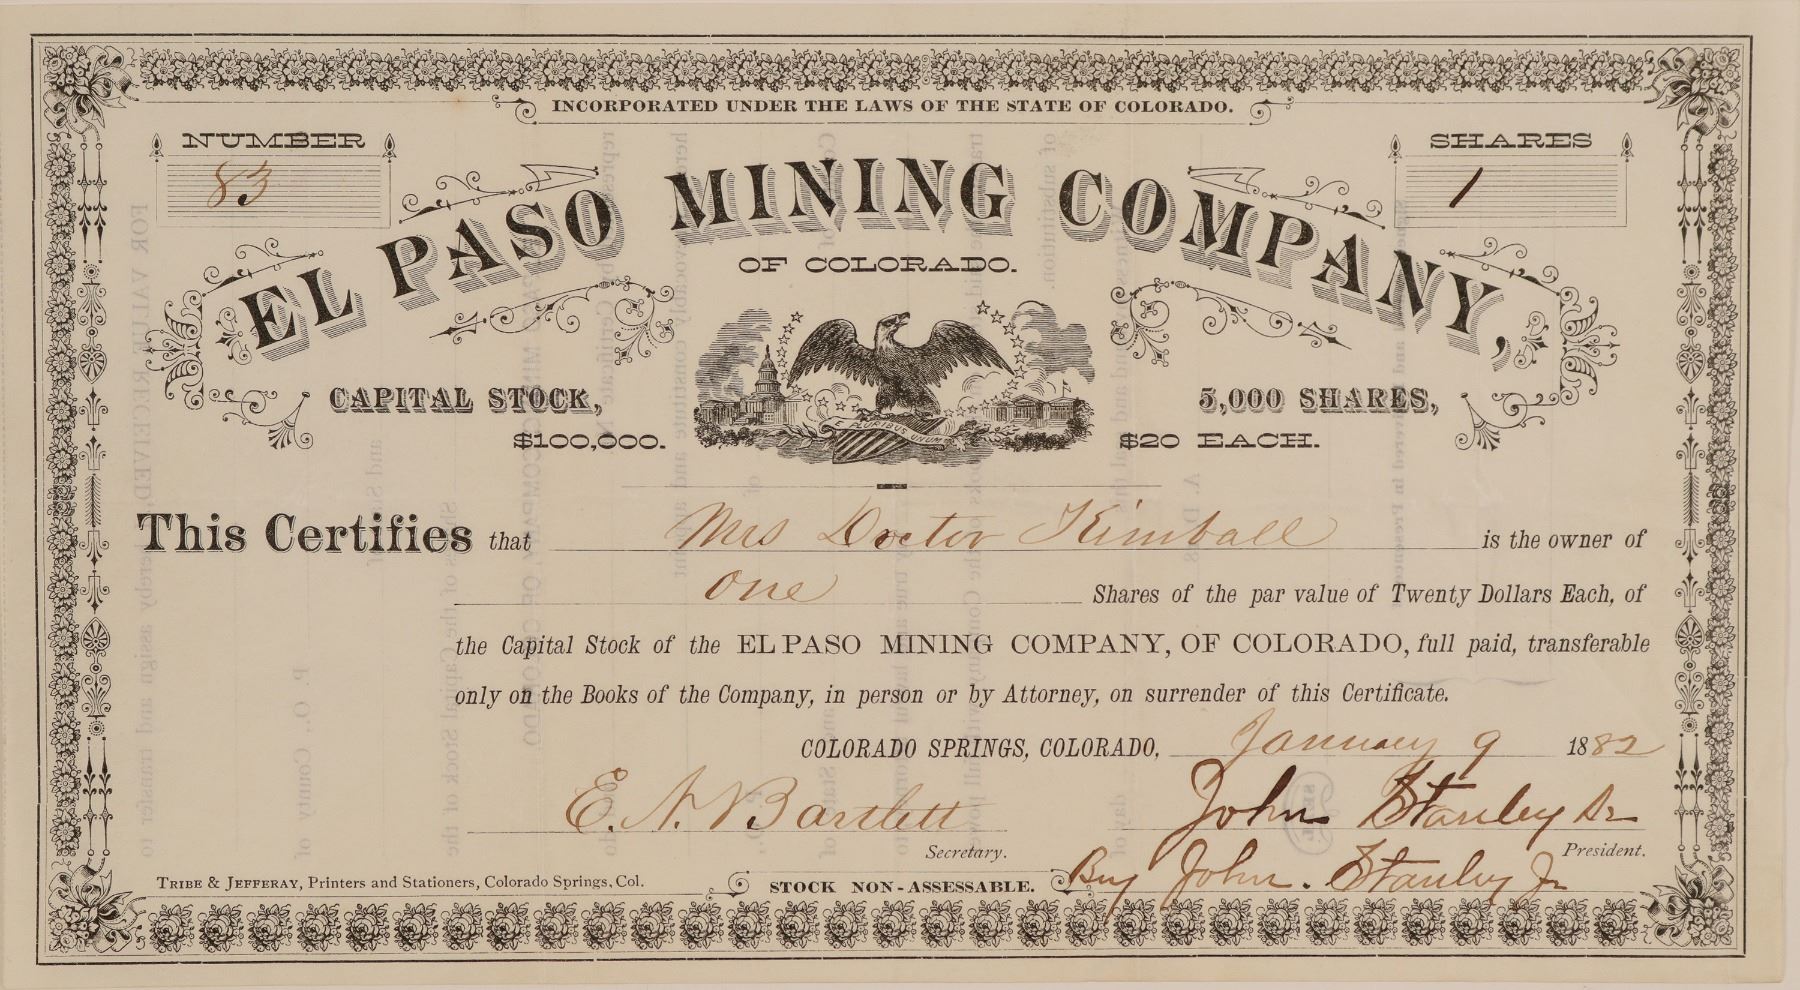 INCORPORATED UNDER THE LAWS OF THE STATE OF COLORADO.
NUMBER
83
SHARES
1
EL PASO MINING COMPANY,
OF COLORADO.
CAPITAL STOCK,
$100,000.
E PLURIBUS UNUM
5,000 SHARES,
$20 EACH.
This Certifies that Mrs Doctor Kimball is the owner of
one Shares of the par value of Twenty Dollars Each, of
the Capital Stock of the EL PASO MINING COMPANY, OF COLORADO, full paid, transferable
only on the Books of the Company, in person or by Attorney, on surrender of this Certificate.
COLORADO SPRINGS, COLORADO, January 9 1882
E. N. Bartlett
Secretary.
John Stanley Sr
President.
By John. Stanley Jr
TRIBE & JEFFERAY, Printers and Stationers, Colorado Springs, Col.
STOCK NON-ASSESSABLE.